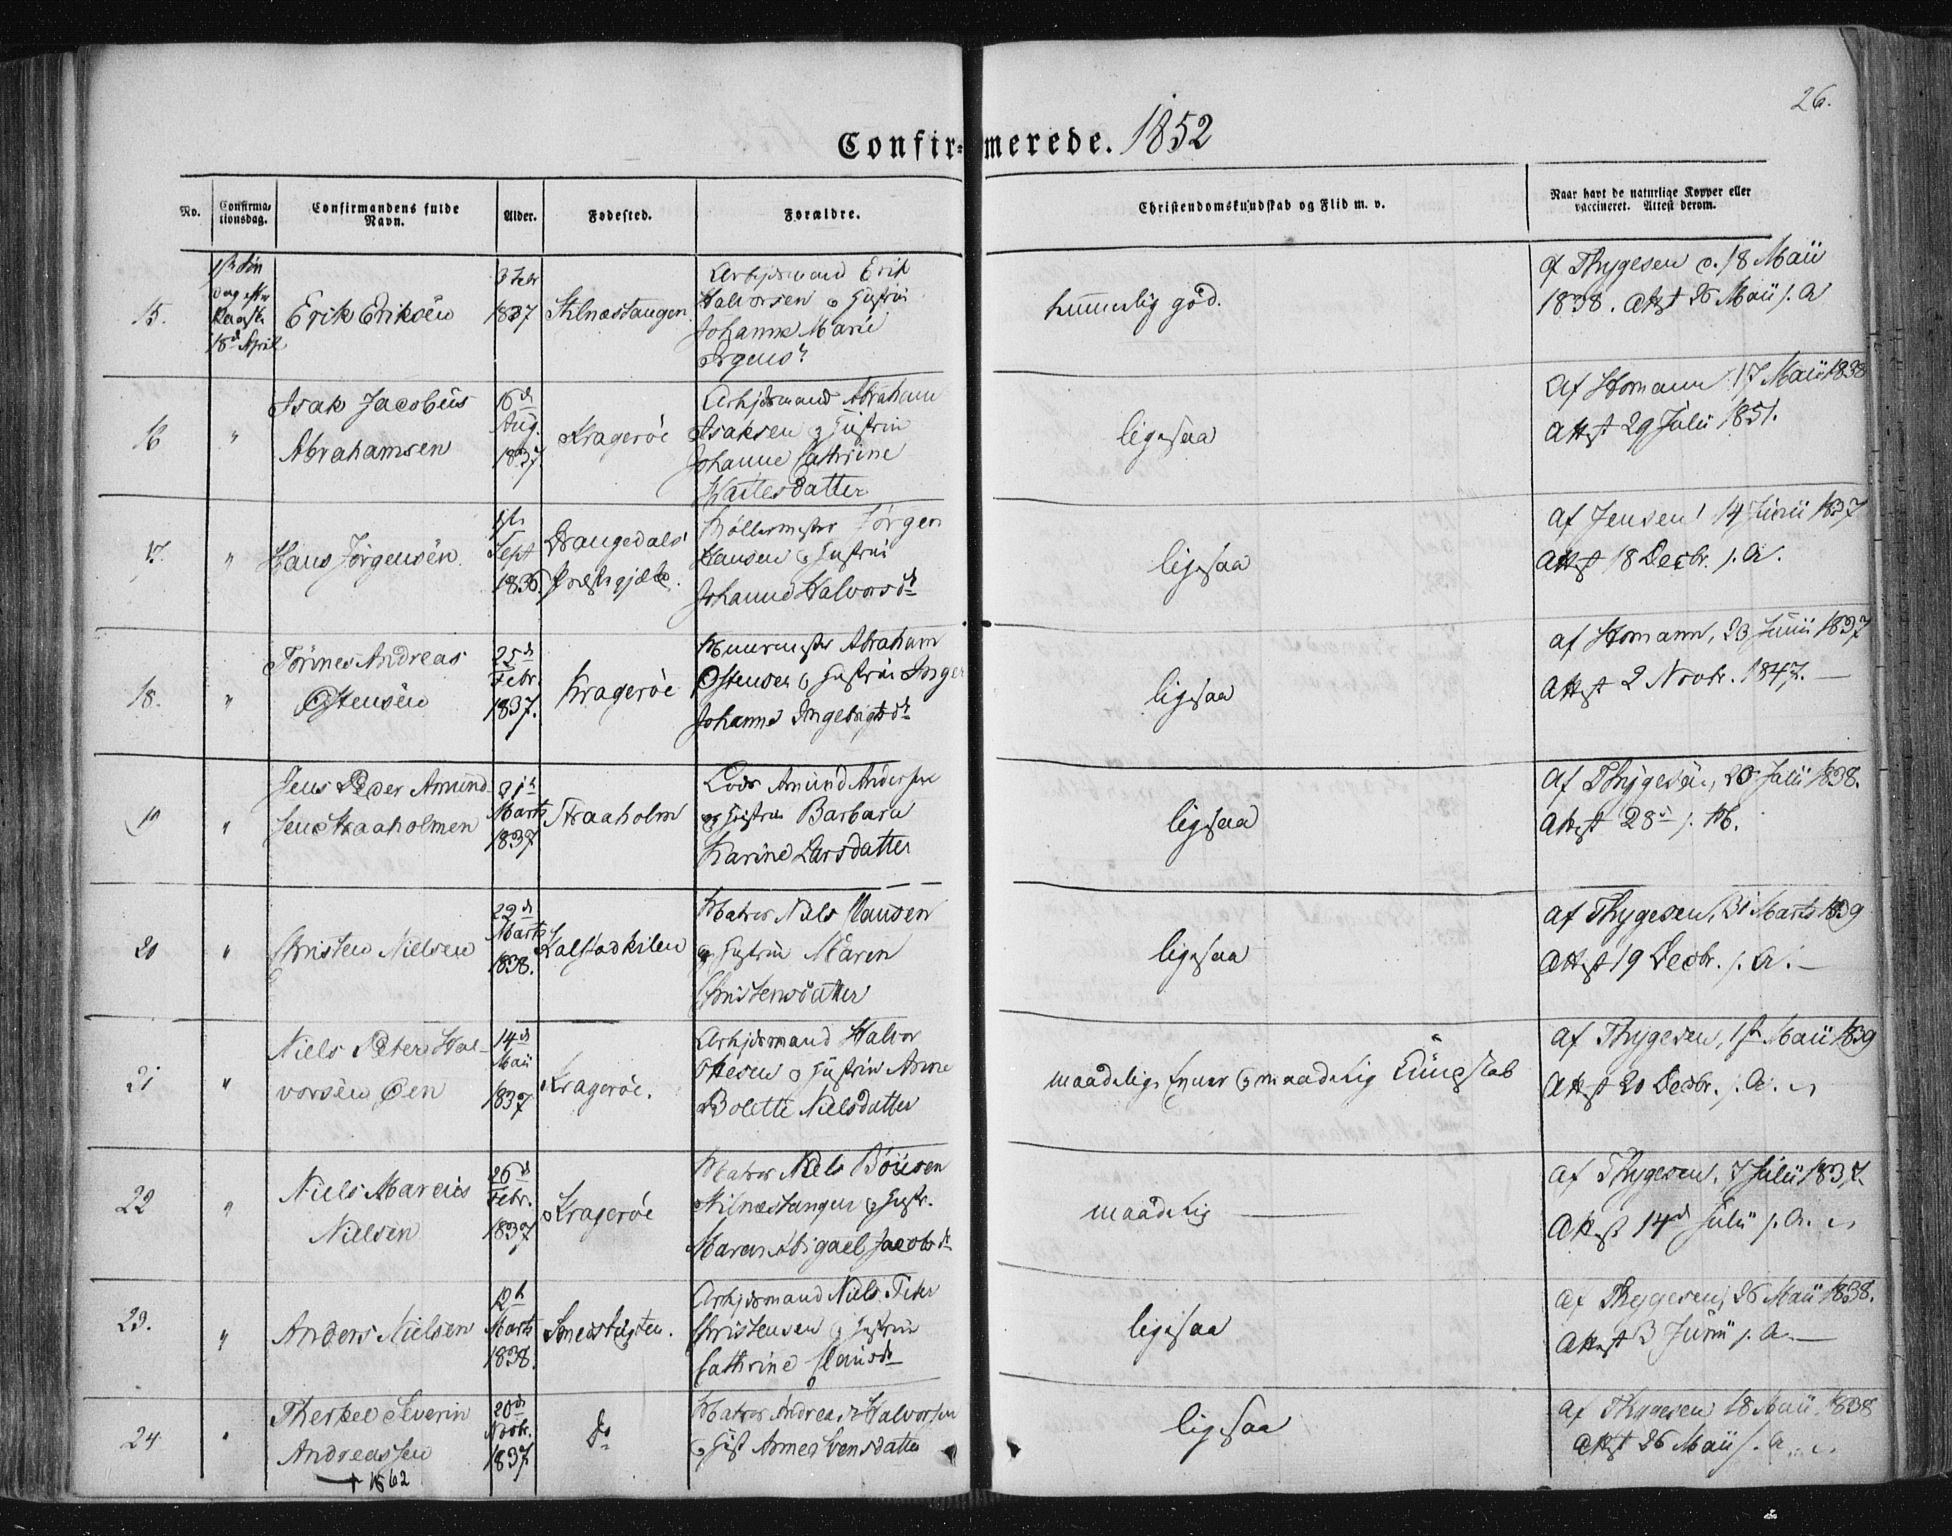 26.
Confirmerede. 1852
No.
Confirmationsdag.
Confirmandens fulde Navn.
Alder.
Fødested.
Forældre.
Christendomskundskab og Flid m. v.
Naar havt de naturlige Kopper eller vaccineret. Attest derom.
15.
18d April
Erik Eriksen
3 Febr
1837
Arbjdsmand Erik
Halvorsen og Hustru
Johanne Marie
god.
af Thygesen d. 18 Maii
1838. Attst 26 Maii s. A
16
"
Isak Jacobus
Abrahamsen
16d
Aug.
1837
Kragerøe
Arbjdsmand Abraham
Isaksen og Hustru
Johanne Cathrine
ligesaa
af Homann 17 Maii 1838
Attst 29 Julii 1851.
17.
"
Hans Jørgensen
Sept
1836
Drangedals
Præstegjæld.
Møllermester Jørgen
Hansen og Hustru
Johanne Halvorsdr
ligesaa
af Jensen 14 Junii 1837
Attst 18 Decbr. s. A.
18.
"
Andreas
Ostensen
25d
Febr.
1837.
Kragerøe
Muurmester Abraham
Ostensen og Hustru Inger
Johanne Ingebrigtsdr
ligesaa
af Homann, 23 Junii 1837
Attst 2 Novbr. 1847.
19
"
Jens Peder Amund-
sen Straaholmen
Marts
1837
Straaholm
Lods Amund Andersen
og Hustru Barbara
Karine Larsdatter
ligesaa
af Thygesen, 20 Julii 1838.
Attst 28d s. M.
20
"
Christen Nielsen
22d
Marts
1838.
Kalstadkilen
Matros Niels Clausen
og Hustru Maren
Christensdatter
ligesaa
af Thygesen, 31 Marts 1839
Attst 19 Decbr. s. A.
21
"
Niels Peter Hal-
vorsen Øen
14d
Maii
1837
Kragerøe.
Arbjdsmand Halvor
Ottesen og Hustru Anne
Bolette Nielsdatter
maadelig Kundskab
af Thygesen, 1st Maii 1839
Attst 20 Decbr. s. A.
22
"
Niels Marcus
Nielsen
26d
Febr.
1837
Kragerøe
Matros Niels
Stilnæstangen og Hustr.
Maren Abigael Jacobsdr
maadelig
af Thygesen, 7 Julii 1837
Attst 14d Julii s. A.
23.
"
Anders Nielsen
Marts
1838.
Arbjdsmand Niels Peter
Christensen og Hustru
Cathrine Clausdr
ligesaa
af Thygesen, 26 Maii 1838.
Attst 3 Junii s. A.
24
"
Therkel Severin
Andreassen
† 1862
20d
Novbr.
1837
Do
Matros Andreas Halvorsen
og Hust Anne Svensdatter
ligesaa
af Thygesen 18 Maii 1838
Attst 26 Maii s. A.